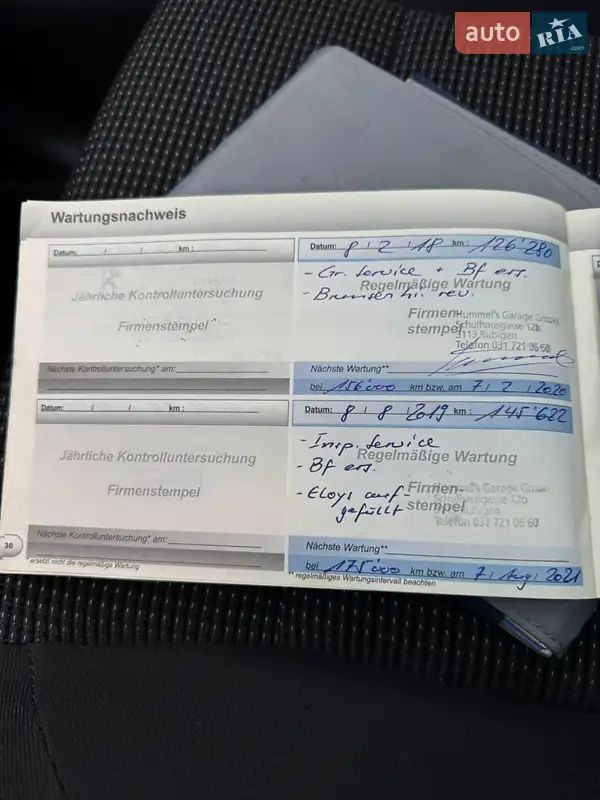 auto RIA .com
Wartungsnachweis
Datum: / / km :
Jährliche Kontrolluntersuchung
Firmenstempel
Nächste Kontrolluntersuchung* am:
Datum: 8 / 2 / 18 km : 126'280
- Gr. Service + Bf ers.
- Bremsen hi. rev.
Regelmäßige Wartung
Firmen-
stempel
Hummel's Garage GmbH
Schulhausgasse 12b
3113 Rubigen
Telefon 031 721 06 60
Nächste Wartung**
bei 156'000 km bzw. am 7 / 2 / 2020
Datum: / / km :
Jährliche Kontrolluntersuchung
Firmenstempel
Nächste Kontrolluntersuchung* am:
* ersetzt nicht die regelmäßige Wartung
30
Datum: 8 / 8 / 2019 km : 145'622
- Insp. Service
- Bf ers.
- Eloys auf-
gefüllt
Regelmäßige Wartung
Firmen-
stempel
Hummel's Garage GmbH
Schulhausgasse 12b
Rubigen
Telefon 031 721 06 60
Nächste Wartung**
bei 175'000 km bzw. am 7 / Aug / 2021
** regelmäßiges Wartungsintervall beachten